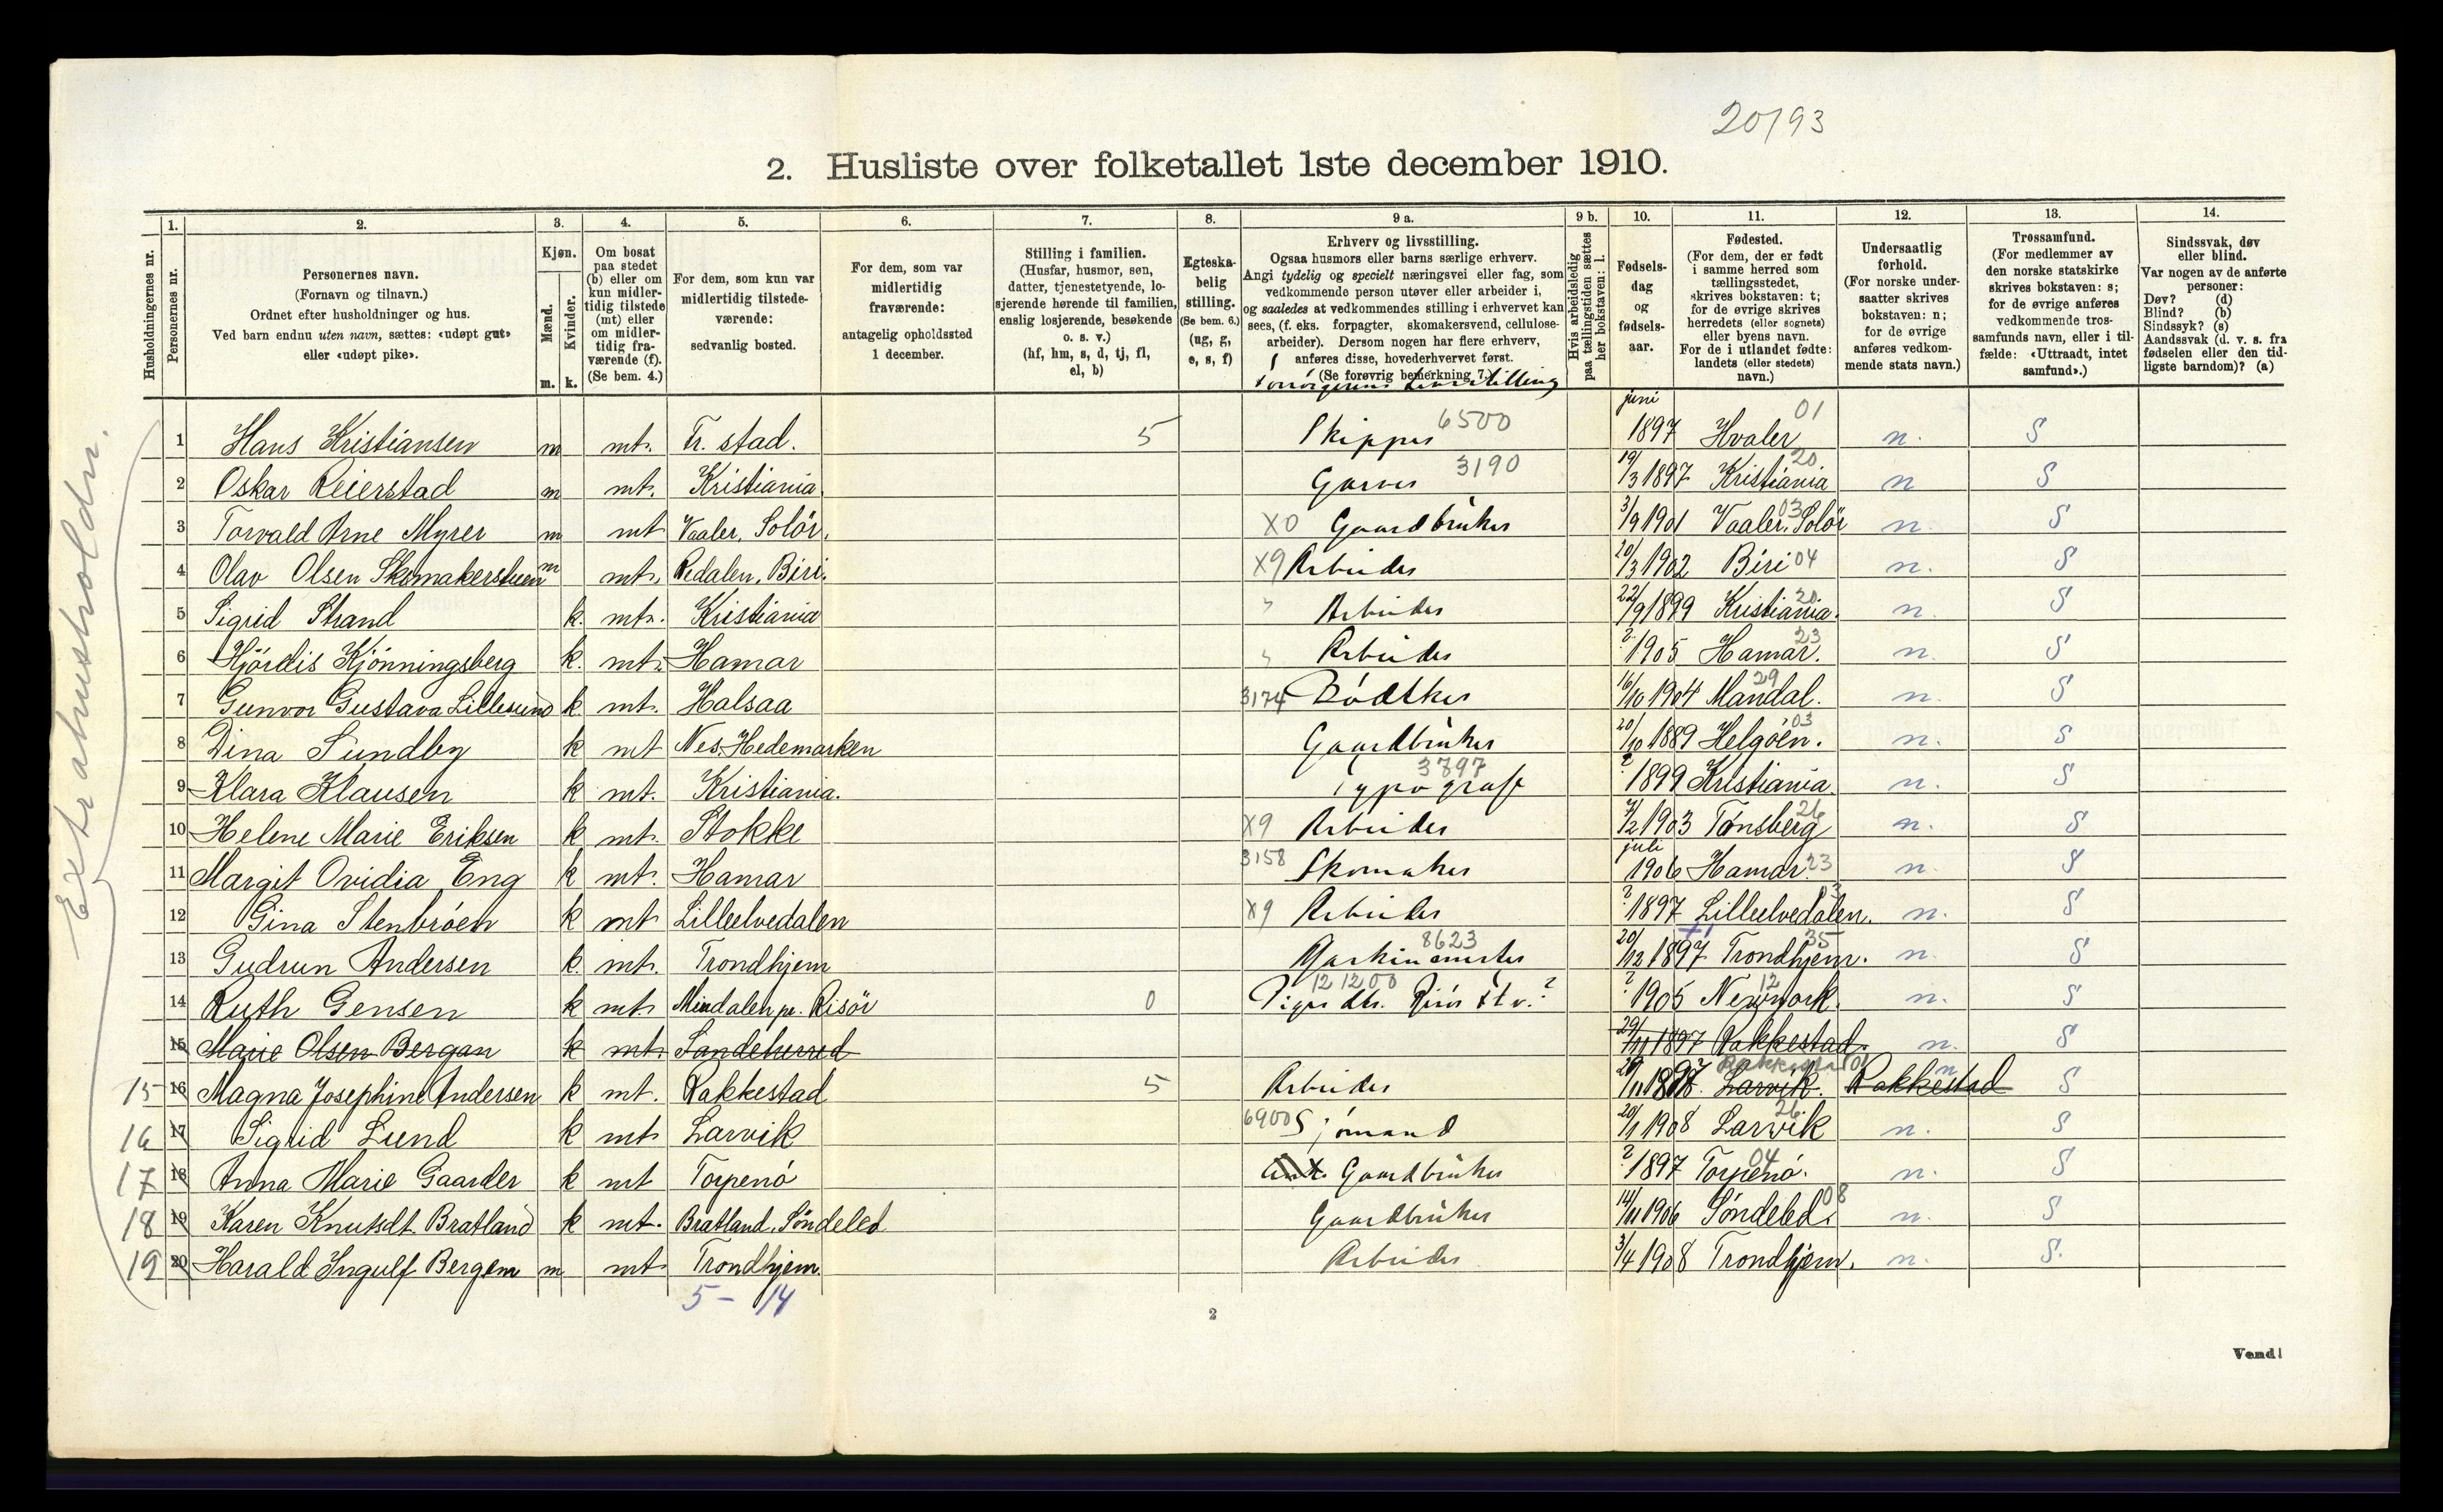 20/93
2. Husliste over folketallet 1ste december 1910.
Husholdningernes nr.
1. Personernes nr.
2. Personernes navn. (Fornavn og tilnavn.) Ordnet efter husholdninger og hus. Ved barn endnu uten navn, sættes: «udøpt gut» eller «udøpt pike».
3. Kjøn. Mænd. m. Kvinder. k.
4. Om bosat paa stedet (b) eller om kun midlertidig tilstede (mt) eller om midlertidig fraværende (f). (Se bem. 4.)
5. For dem, som kun var midlertidig tilstedeværende: sedvanlig bosted.
6. For dem, som var midlertidig fraværende: antagelig opholdssted 1 december.
7. Stilling i familien. (Husfar, husmor, søn, datter, tjenestetyende, losjerende hørende til familien, enslig losjerende, besøkende o. s. v.) (hf, hm, s, d, tj, fl, el, b)
8. Egteskabelig stilling. (Se bem. 6.) (ug, g, e, s, f)
9 a. Erhverv og livsstilling. Ogsaa husmors eller barns særlige erhverv. Angi tydelig og specielt næringsvei eller fag, som vedkommende person utøver eller arbeider i, og saaledes at vedkommendes stilling i erhvervet kan sees, (f. eks. forpagter, skomakersvend, cellulosearbeider). Dersom nogen har flere erhverv, anføres disse, hovederhvervet først. (Se forøvrig bemerkning 7.)
Forsørgerens Livsstilling
9 b. Hvis arbeidsledig paa tællingstiden sættes her bokstaven: l.
10. Fødselsdag og fødselsaar.
11. Fødested. (For dem, der er født i samme herred som tællingsstedet, skrives bokstaven: t; for de øvrige skrives herredets (eller sognets) eller byens navn. For de i utlandet fødte: landets (eller stedets) navn.)
12. Undersaatlig forhold. (For norske undersaatter skrives bokstaven: n; for de øvrige anføres vedkommende stats navn.)
13. Trossamfund. (For medlemmer av den norske statskirke skrives bokstaven: s; for de øvrige anføres vedkommende trossamfunds navn, eller i tilfælde: «Uttraadt, intet samfund».)
14. Sindssvak, døv eller blind. Var nogen av de anførte personer: Døv? (d) Blind? (b) Sindssyk? (s) Aandssvak (d. v. s. fra fødselen eller den tidligste barndom)? (a)
Extrahusholdn.
1 Hans Kristiansen m mt. Fr. stad. 5 Skipper 6500 juni 1897 Hvaler 01 n. S
2 Oskar Reierstad m mt. Kristiania. Garver 3190 19/3 1897 Kristiania 20 n S
3 Torvald Arne Myrer m mt Vaaler, Solör. X0 Gaardbruker 3/9 1901 Vaaler, Solör 03 n. S
4 Olav Olsen Skomakerstuen m mt. Redalen, Biri. X9 Arbeider 20/3 1902 Biri 04 n. S
5 Sigrid Strand k. mt. Kristiania " Arbeider 22/9 1899 Kristiania. 20 n. S
6 Hjördis Kjönningsberg k. mt. Hamar " Arbeider ? 1905 Hamar. 23 n. S
7 Gunvor Gustava Lillesund k. mt. Halsaa 3174 Bödtker 16/10 1904 Mandal. 29 n. S
8 Dina Sundby k mt Nes, Hedemarken Gaardbruker 20/10 1889 Helgöen. 03 n. S
9 Klara Klausen k mt. Kristiania. Typograf 3797 ? 1899 Kristiania. n. S
10 Helene Marie Eriksen k mt. Stokke X9 Arbeider 7/2 1903 Tønsberg 26 n. S
11 Margit Ovidia Eng k mt. Hamar 3158 Skomaker juli 1906 Hamar. 23 n. S
12 Gina Stenbröen k mt Lilleelvedalen X9 Arbeider ? 1897 Lilleelvedalen. 03 n. S
13 Gudrun Andersen k. mt. Trondhjem Maskinemester 8623 20/12 1897 Trondhjem. 35 n. S
14 Ruth Gensen k mt. Mindalen pr. Risör 0 Piges dtr. Risör St v.? 12 1200 ? 1905 Newyork. 12 n. S
15 Marie Olsen Bergan k mt. Sandeherred 29/11 1897 Rakkestad. n. S
15 16 Magna Josephine Andersen k mt. Rakkestad 5 Arbeider 29/11 1897 Larvik. Rakkestad 01 Rakkestad n S
16 17 Sigrid Lund k mt Larvik 6900 Sjømand 20/1 1908 Larvik 26 n. S
17 18 Anna Marie Gaarder k mt Torpenö Gaardbruker ? 1897 Torpenö. 04 n. S
18 19 Karen Knutsdt. Bratland k mt. Bratland, Söndeled Gaardbruker 14/11 1906 Söndeled. 08 n. S
19 20 Harald Ingulf Bergem m mt Trondhjem. Arbeider 3/4 1908 Trondhjem. n. S.
5 - 14
2
Vend!